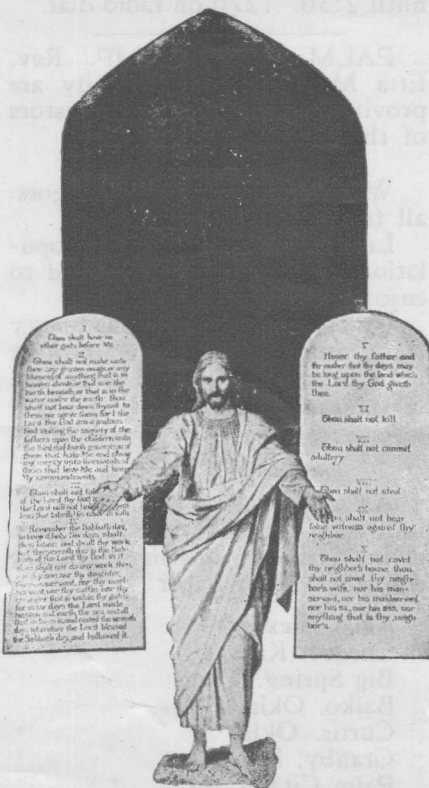 until 2:30.
on radio dial
PALM
Rev.
Etta
are
of
all
I
Thou shalt have no
other gods before Me.
II
Thou shalt not make unto
thee any graven image, or any
likeness of anything that is in
heaven above, or that is in the
earth beneath, or that is in the
water under the earth: thou
shalt not bow down thyself to
them nor serve them: for I the
Lord thy God am a jealous
God visiting the iniquity of the
fathers upon the children unto
the third and fourth generation of
them that hate Me and shew
ing mercy unto thousands of
them that love Me and keep
My commandments.
III
Thou shalt not take
of the Lord thy God in
the Lord will not hold
less that taketh His name in vain.
Remember the Sabbath day,
to keep it holy. Six days shalt
thou labor, and do all thy work:
but the seventh day is the Sab-
bath of the Lord thy God: in it
thou shalt not do any work, thou,
nor thy son, nor thy daughter,
thy manservant, nor thy maid-
servant, nor thy cattle, nor thy
stranger that is within thy gates:
for in six days the Lord made
heaven and earth, the sea, and all
that in them is, and rested the seventh
day: wherefore the Lord blessed
the Sabbath day, and hallowed it.
V
Honor thy father and
thy mother: that thy days may
be long upon the land which
the Lord thy God giveth
thee.
VI
Thou shalt not kill.
VII
Thou shalt not commit
adultery.
VIII
Thou shalt not steal.
IX
Thou shalt not bear
false witness against thy
neighbor.
Thou shalt not covet
thy neighbor's house, thou
shalt not covet thy neigh-
bor's wife, nor his man-
servant, nor his maidservant,
nor his ox, nor his ass, nor
anything that is thy neigh-
bor's.
Big Spring
Balko, Okla.
Curtis, Okla.
Granby,